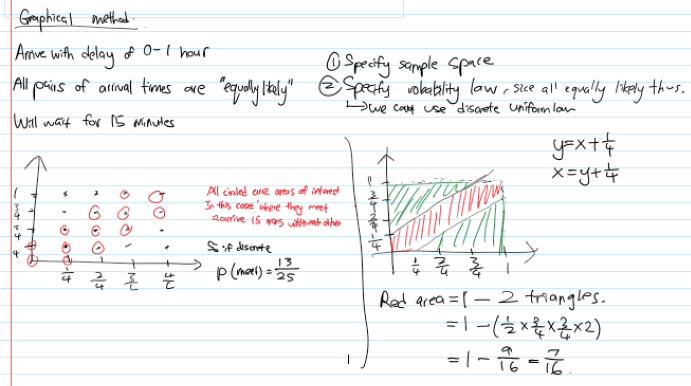 Graphical method.
Arrive with delay of 0-1 hour
All pairs of arrival times are "equally likely"
Will wait for 15 minutes
① Specify sample space
② Specify probability law, since all equally likely thus.
↳ we can use discrete uniform law
1
3/4
2/4
1/4
1/4 2/4 3/4
All circled are areas of interest
In this case where they meet
arrive 15 mins each other
So if discrete
P(meet) = 13/25
y=x+1/4
x=y+1/4
1
3/4
2/4
1/4
1/4 2/4 3/4 1
Red area = 1 - 2 triangles.
= 1 - (1/2 × 3/4 × 3/4 × 2)
= 1 - 9/16 = 7/16.